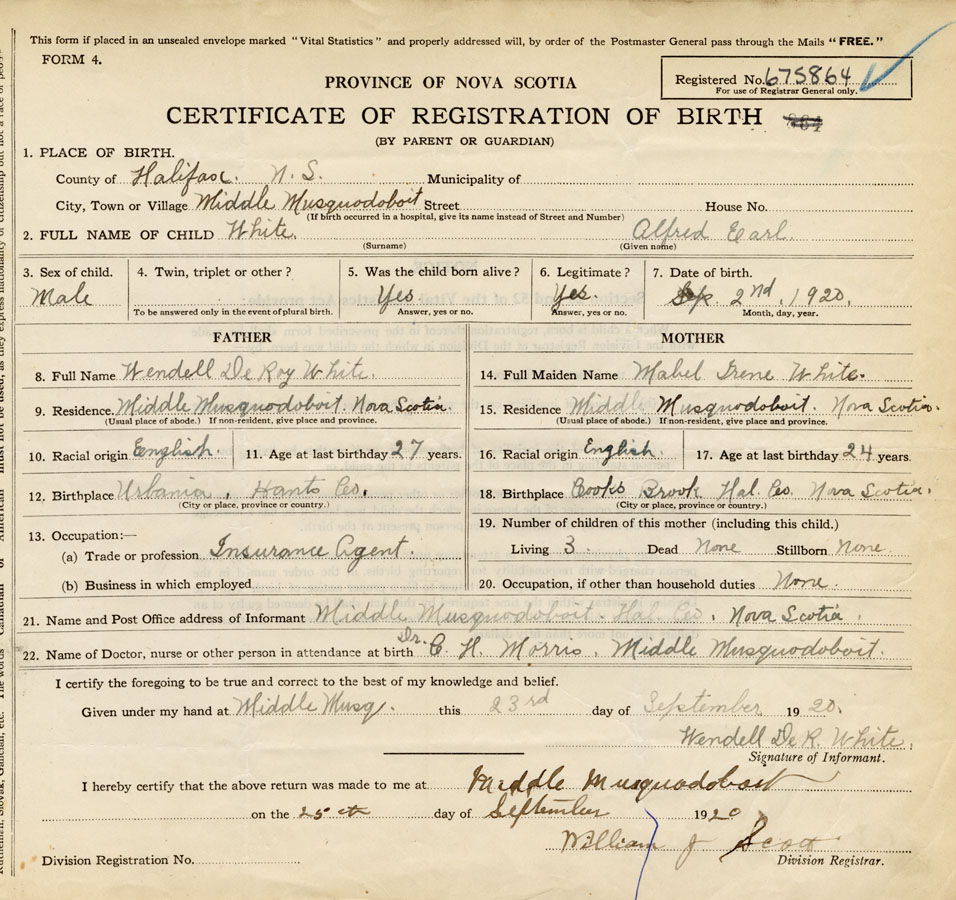 This form if placed in an unsealed envelope marked "Vital Statistics" and properly addressed will, by order of the Postmaster General pass through the Mails "FREE."
FORM 4.
Registered No. 675864
For use of Registrar General only.
PROVINCE OF NOVA SCOTIA
CERTIFICATE OF REGISTRATION OF BIRTH
(BY PARENT OR GUARDIAN)
1. PLACE OF BIRTH.
County of Halifax. N. S. Municipality of
City, Town or Village Middle Musquodoboit Street House No.
(If birth occurred in a hospital, give its name instead of Street and Number)
2. FULL NAME OF CHILD White. Alfred Earl.
(Surname) (Given name)
3. Sex of child. 4. Twin, triplet or other? 5. Was the child born alive? 6. Legitimate? 7. Date of birth.
Male Yes Yes. Sep. 2nd, 1920.
To be answered only in the event of plural birth. Answer, yes or no. Answer, yes or no. Month, day, year.
FATHER MOTHER
8. Full Name Wendell De Roy White. 14. Full Maiden Name Mabel Irene White.
9. Residence. Middle Musquodoboit. Nova Scotia. 15. Residence Middle Musquodoboit. Nova Scotia.
(Usual place of abode.) If non-resident, give place and province. (Usual place of abode.) If non-resident, give place and province.
10. Racial origin English. 11. Age at last birthday 27 years. 16. Racial origin English. 17. Age at last birthday 24 years.
12. Birthplace Urbania, Hants Co. 18. Birthplace Cooks Brook Hal. Co. Nova Scotia.
(City or place, province or country.) (City or place, province or country.)
19. Number of children of this mother (including this child.)
13. Occupation:—
(a) Trade or profession Insurance Agent. Living 3 Dead None Stillborn None.
(b) Business in which employed 20. Occupation, if other than household duties None.
21. Name and Post Office address of Informant Middle Musquodoboit. Hal. Co, Nova Scotia.
22. Name of Doctor, nurse or other person in attendance at birth Dr. C. H. Morris. Middle Musquodoboit.
I certify the foregoing to be true and correct to the best of my knowledge and belief.
Given under my hand at Middle Musq. this 23rd day of September 1920.
Wendell De R. White.
Signature of Informant.
I hereby certify that the above return was made to me at Middle Musquodoboit
on the 25th day of September 1920
William J Scott
Division Registrar.
Division Registration No.